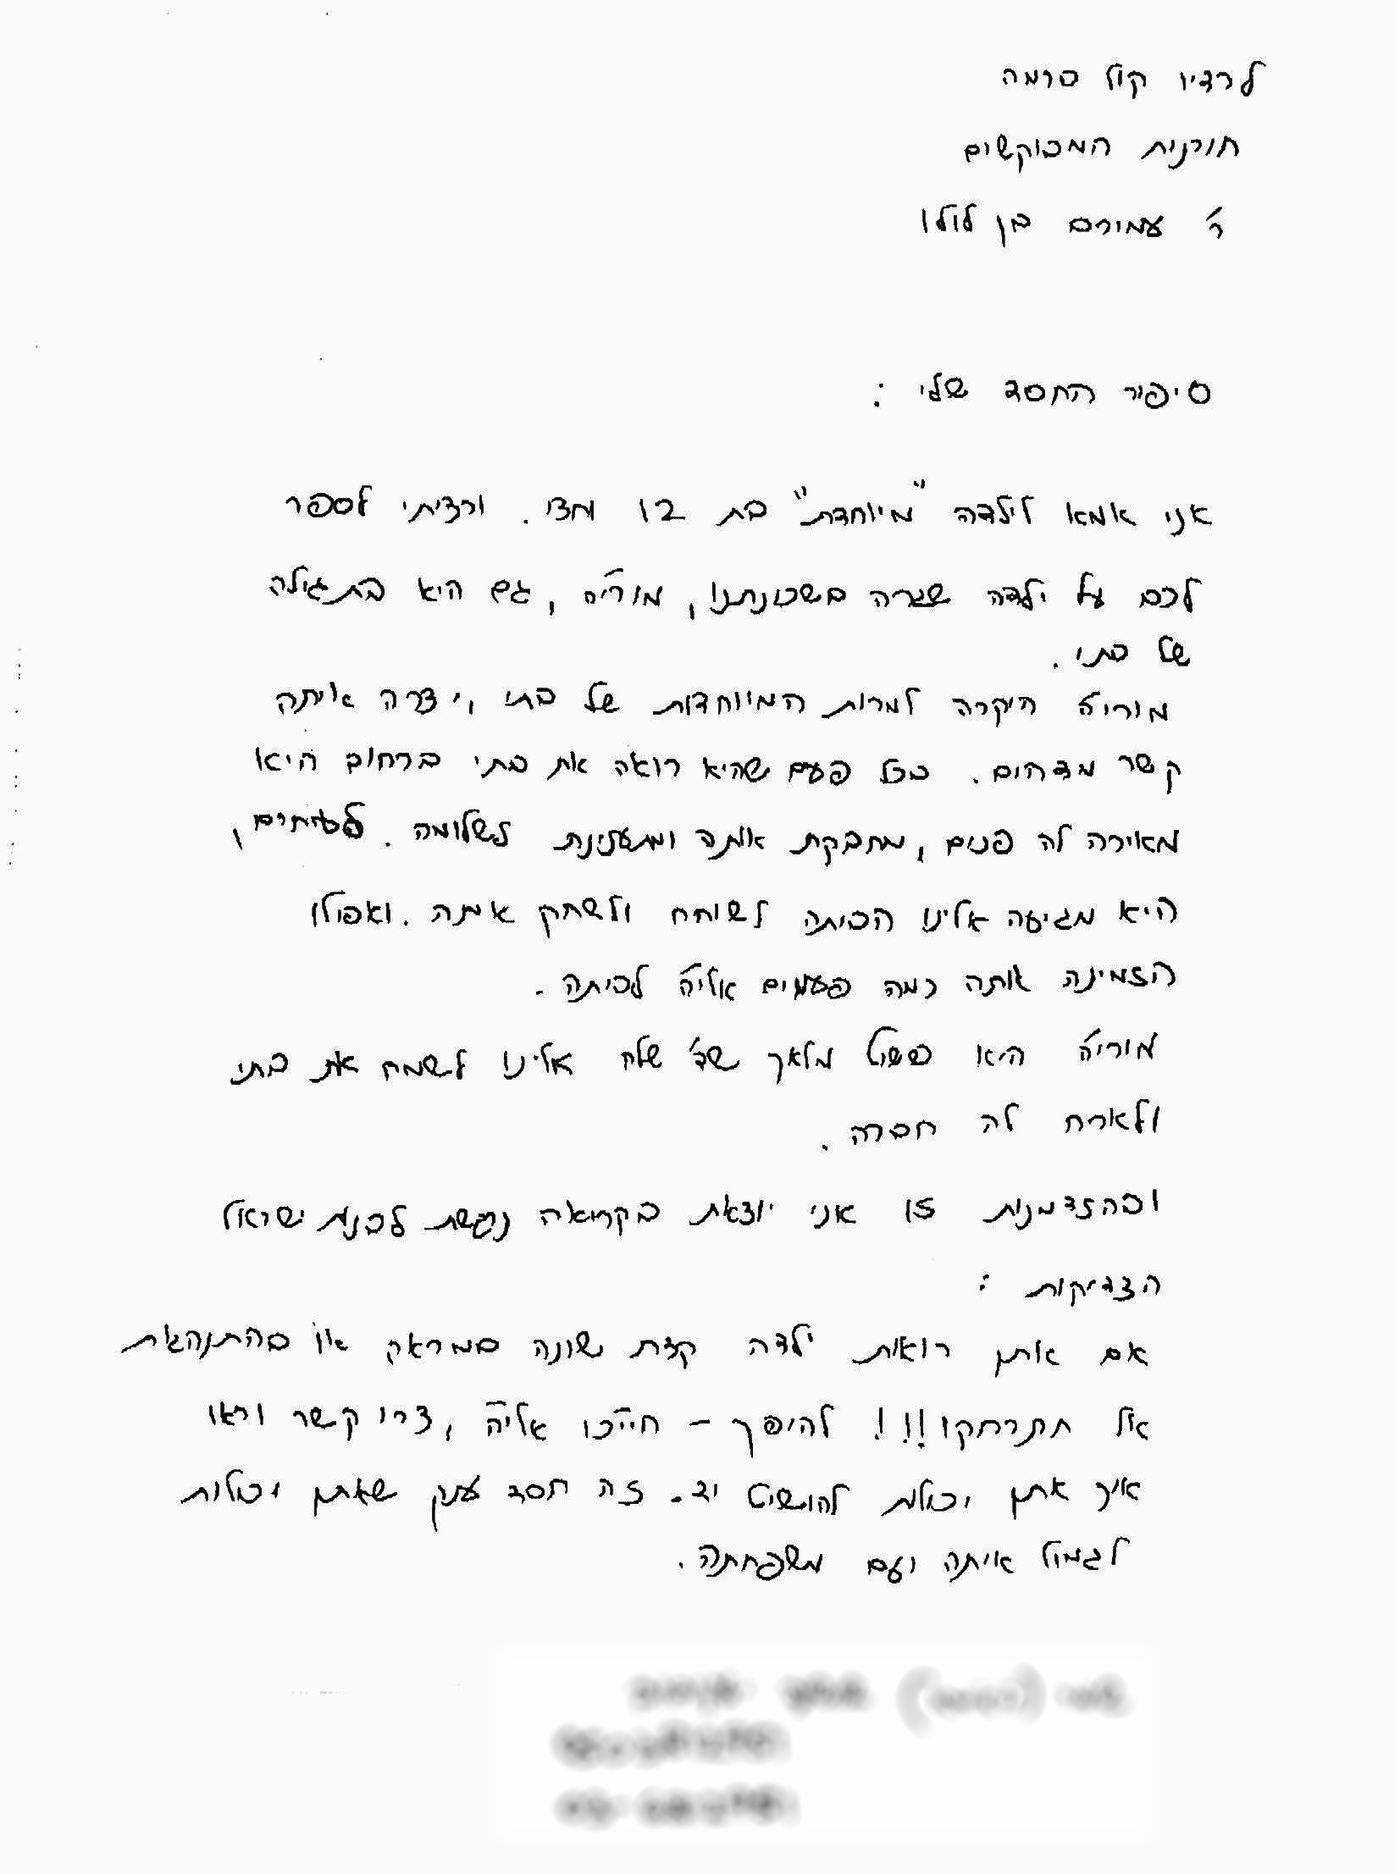 לרדיו קול ברמה
תורנית המבוקשים
ר' עמירם בן לולו
סיפור החסד שלי :
אני אמא לילדה "מיוחדת" בת 12 וחצי. ורציתי לספר
לכם על ילדה שגרה בשכונתנו, מוריה, גם היא בת גילה
של בתי.
מוריה היקרה למרות המיוחדות של בתי, יצרה איתה
קשר מדהים. בכל פעם שהיא רואה את בתי ברחוב היא
מאירה לה פנים, מחבקת אותה ומתענינת לשלומה. לפעמים,
היא מגיעה אלינו הביתה לשוחח ולשחק אתה. ואפילו
הזמינה אותה כמה פעמים אליה לביתה.
מוריה היא פשוט מלאך שה' שלח אלינו לשמח את בתי
ולארח לה חברה.
ובהזדמנות זו אני יוצאת בקריאה נרגשת לבנות ישראל
הצדיקות :
אם אתן רואות ילדה קצת שונה במראה או בהתנהגות
אל תתרחקו!!! להיפך - חייכו אליה, צרו קשר וראו
איך אתן יכולות להושיט יד. זה חסד ענק שאתן יכולות
לגמול איתה ועם משפחתה.